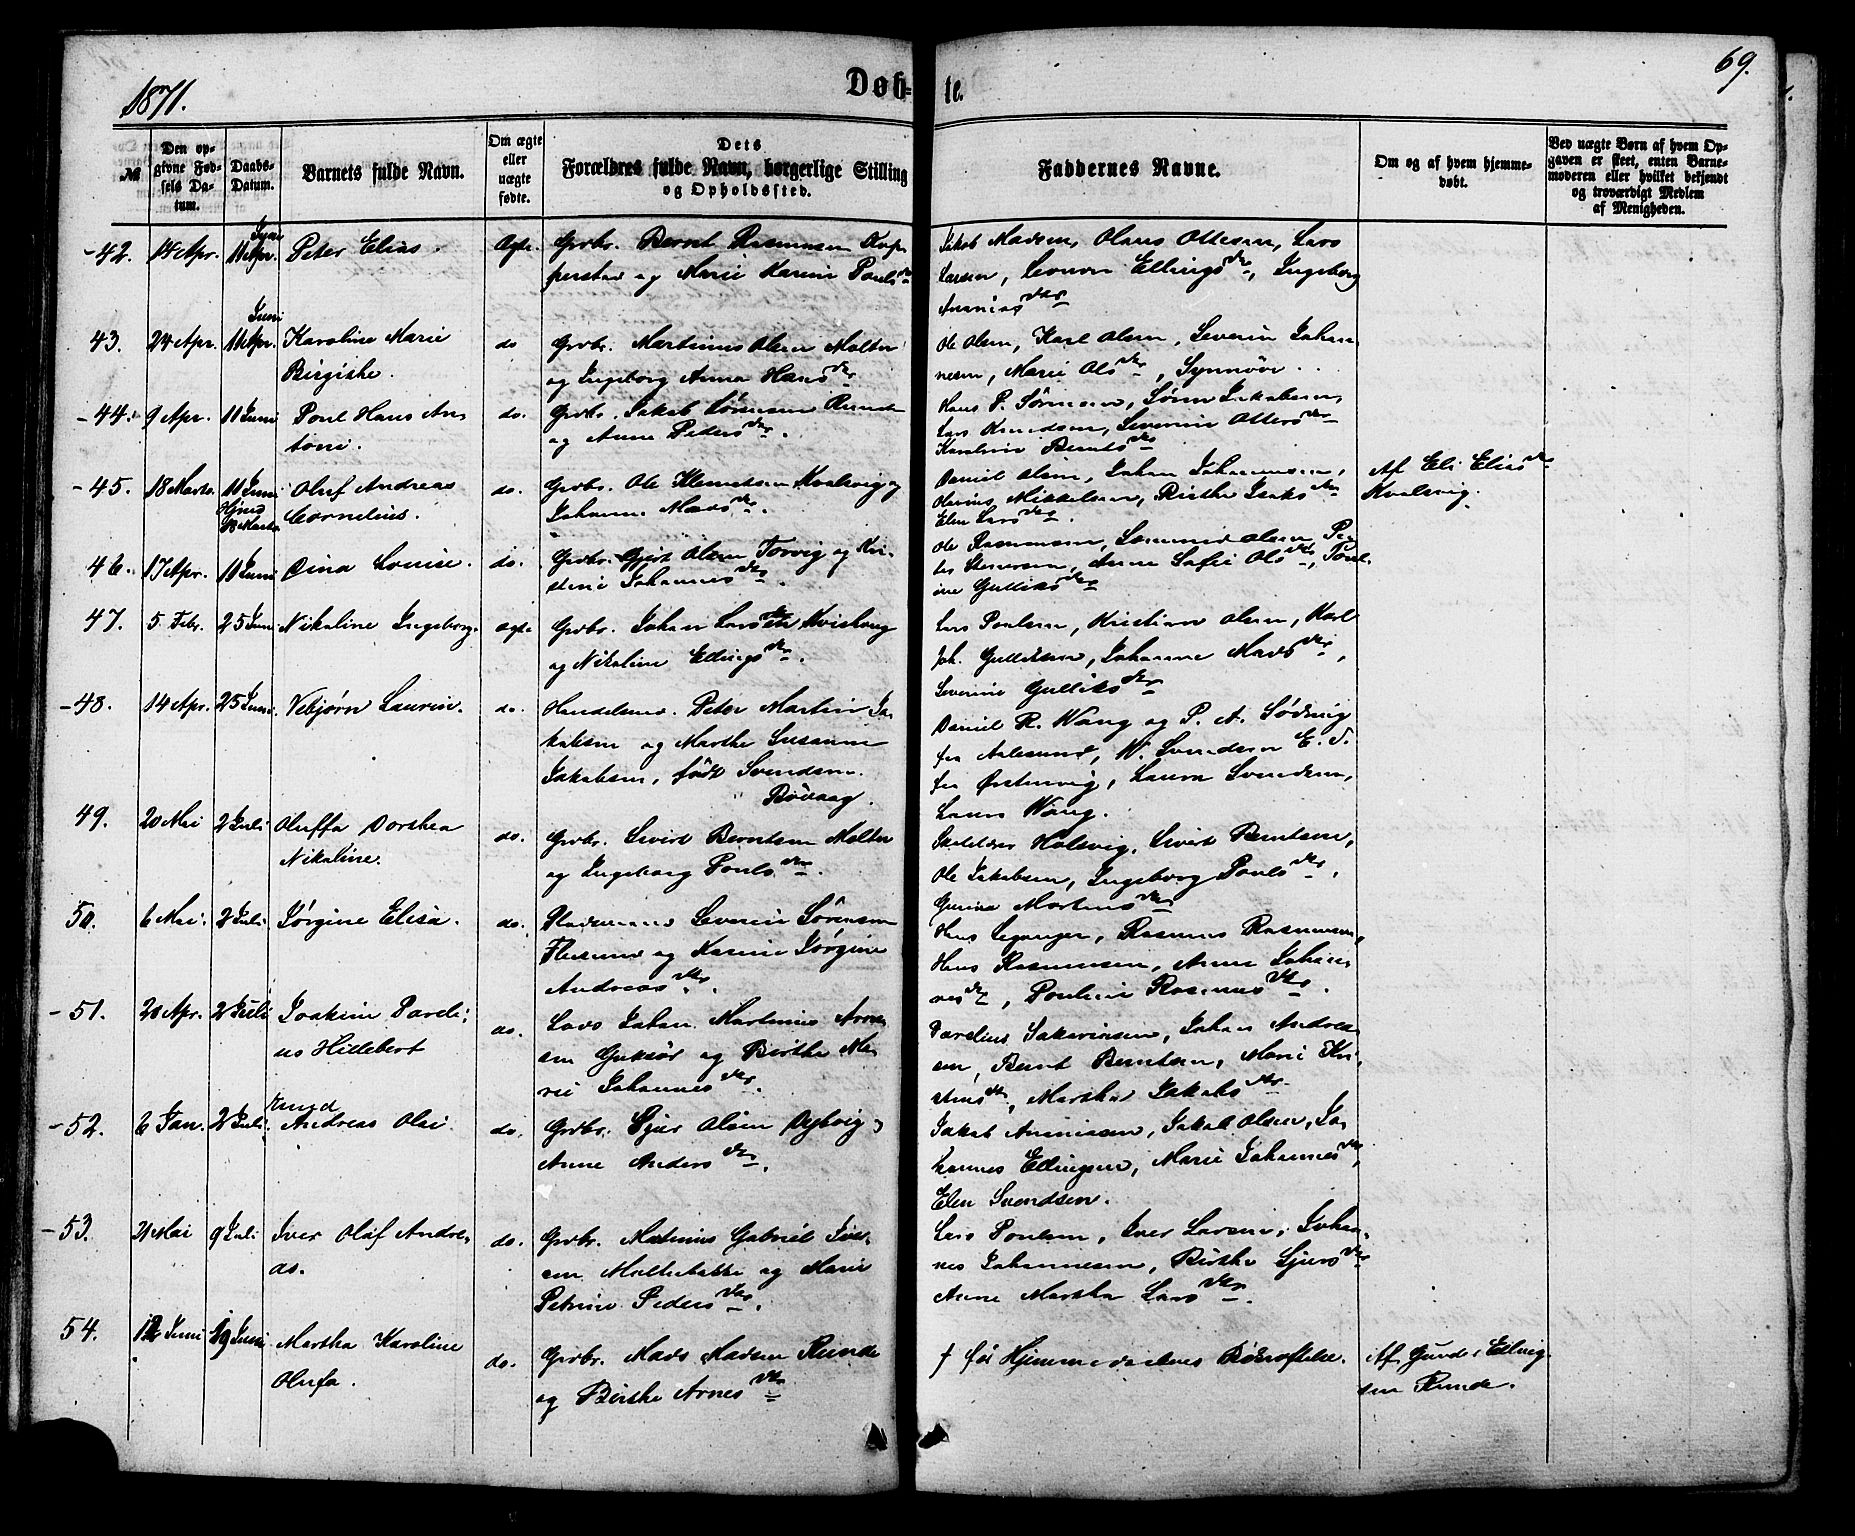 1871.
Døb-
te.
69.
№
Den op-
givne Fød-
sels Da-
tum.
Daabs-
Datum.
Barnets fulde Navn.
Om ægte
eller
uægte
fødte.
Dets
Forældres fulde Navn, borgerlige Stilling
og Opholdssted.
Faddernes Navne.
Om og af hvem hjemme-
døbt.
Ved uægte Børn af hvem Op-
gaven er skeet, enten Barne-
moderen eller hvilket bekjendt
og troværdigt Medlem
af Menigheden.
- 42. 14 Apr. 11 Apr. Juni Peter Elias. Ægte. Grbr. Bernt Rasmussen Kop-
perstad og Marie Karine Pouls dtr
Jakob Madsen, Olaus Ottesen, Lars
Larsen, Leonore Ellings dtr, Ingeborg
Ananias dtr
43. 24 Apr. 11 Apr. Juni Karoline Marie
Birgithe.
do Grbr. Martinus Olsen Molter
og Ingeborg Anna Hans dtr
Ole Olsen, Karl Olsen, Severin Johan-
nesen, Marie Ols dtr, Synnøve
- 44. 9 Apr. 11 Juni Poul Hans An-
toni.
do. Grbr. Jakob Sørensen Runde
og Anne Peders dtr.
Hans P. Sørensen, Søren Jakobsen,
Lars Knudsen, Severine Otters dtr
Karoline Bernts dtr
- 45. 18 Marts. 11 Juni
Hjmd
18 Marts
Oluf Andreas
Cornelius.
do. Grbr. Ole Klemetsen Kvalsvig og
Johanne Mads dtr.
Daniel Olsen, Johan Johannesen,
Olavius Mikkelsen, Birthe Isaks dtr
Elen Lars dtr.
Af Eli Elias dtr
Kvalsvig.
46. 17 Apr. 11 Juni Oina Louise. do. Grbr. Gjert Olsen Torvig og Kri-
stine Johannes dtr.
Ole Rasmussen, Olsen, Pe-
ter Stenersen, Anne Sofie Ols dtr, Poul-
ine Gulliks dtr
47. 5. Febr. 25 Juni Nikoline Ingeborg. ægte Grbr. Johan Larsen Kvishaug
og Nikoline Ellings dtr.
Lars Poulsen, Kristian Olsen, Karl
Joh. Gulliksen, Johanne Mads dtr,
Severine Gulliks dtr
- 48. 14 Apr. 25 Juni. Vebjørn Laurin. do. Handelsmd. Peter Martin Ja-
kobsen og Marthe Susanne
Jakobsen, født Svendsen
Rovaag.
Daniel R. Wang og P. A. Sødvig
fra Aalesund, W. Svendsen E. d.
fra Ørstenvig, Laura Svendsen,
Laura Wang.
49. 20 Mai 2 Juli Oluffa Dorthea
Nikoline.
do. Grbr. Sivert Berntsen Molter
og Ingeborg Pouls dtr.
Skolelærer Holsvig, Sivert Berntsen,
Ole Jakobsen, Ingeborg Pouls dtr,
Gurina Mortens dtr
50. 6 Mai. 2 Juli. Jørgine Elisa. do. Pladsmand Severin Sørensen
Flusund og Karine Jørgine
Andreas dtr.
Hans Leganger, Rasmus Rasmussen,
Hans Rasmussen, Anne Johan-
nes dtr, Pouline Rasmus dtr.
- 51. 20 Apr. 2 Juli Joakim Pareli-
us Hillebert
do. Lods Johan Martinus Arne-
sen Goksør og Birthe Ma-
rie Johannes dtr.
Parelius Sakariasen, Johan Andrea-
sen, Bernt Berntsen, Marie Kri-
stens dtr, Martha Jakobs dtr
- 52. 6 Jan. 2 Juli. Knud
Andreas Olai. do. Grbr. Sjur Olsen Dybvig og
Anne Anders dtr.
Jakob Ananiasen, Jakob Olsen, Jo-
hannes Ellingsen, Marie Johannes dtr,
Elen Svendsen.
- 53. 21 Mai 9 Juli Iver Olaf Andre-
as.
do. Grbr. Matinus Gabriel Iver-
sen Moltubakke og Marie
Petrine Peders dtr.
Lars Poulsen, Iver Larsen, Johan-
nes Johannesen, Birthe Sjurs dtr
Anne Martha Lars dtr.
54. 12 Juni 19 Juni Martha Karoline
Olufa.
do. Grbr. Mads Madsen Runde
og Birthe Arnes dtr
† før Hjemmedaabens Bekræftelse.
Af Gunder Elling-
sen Runde.